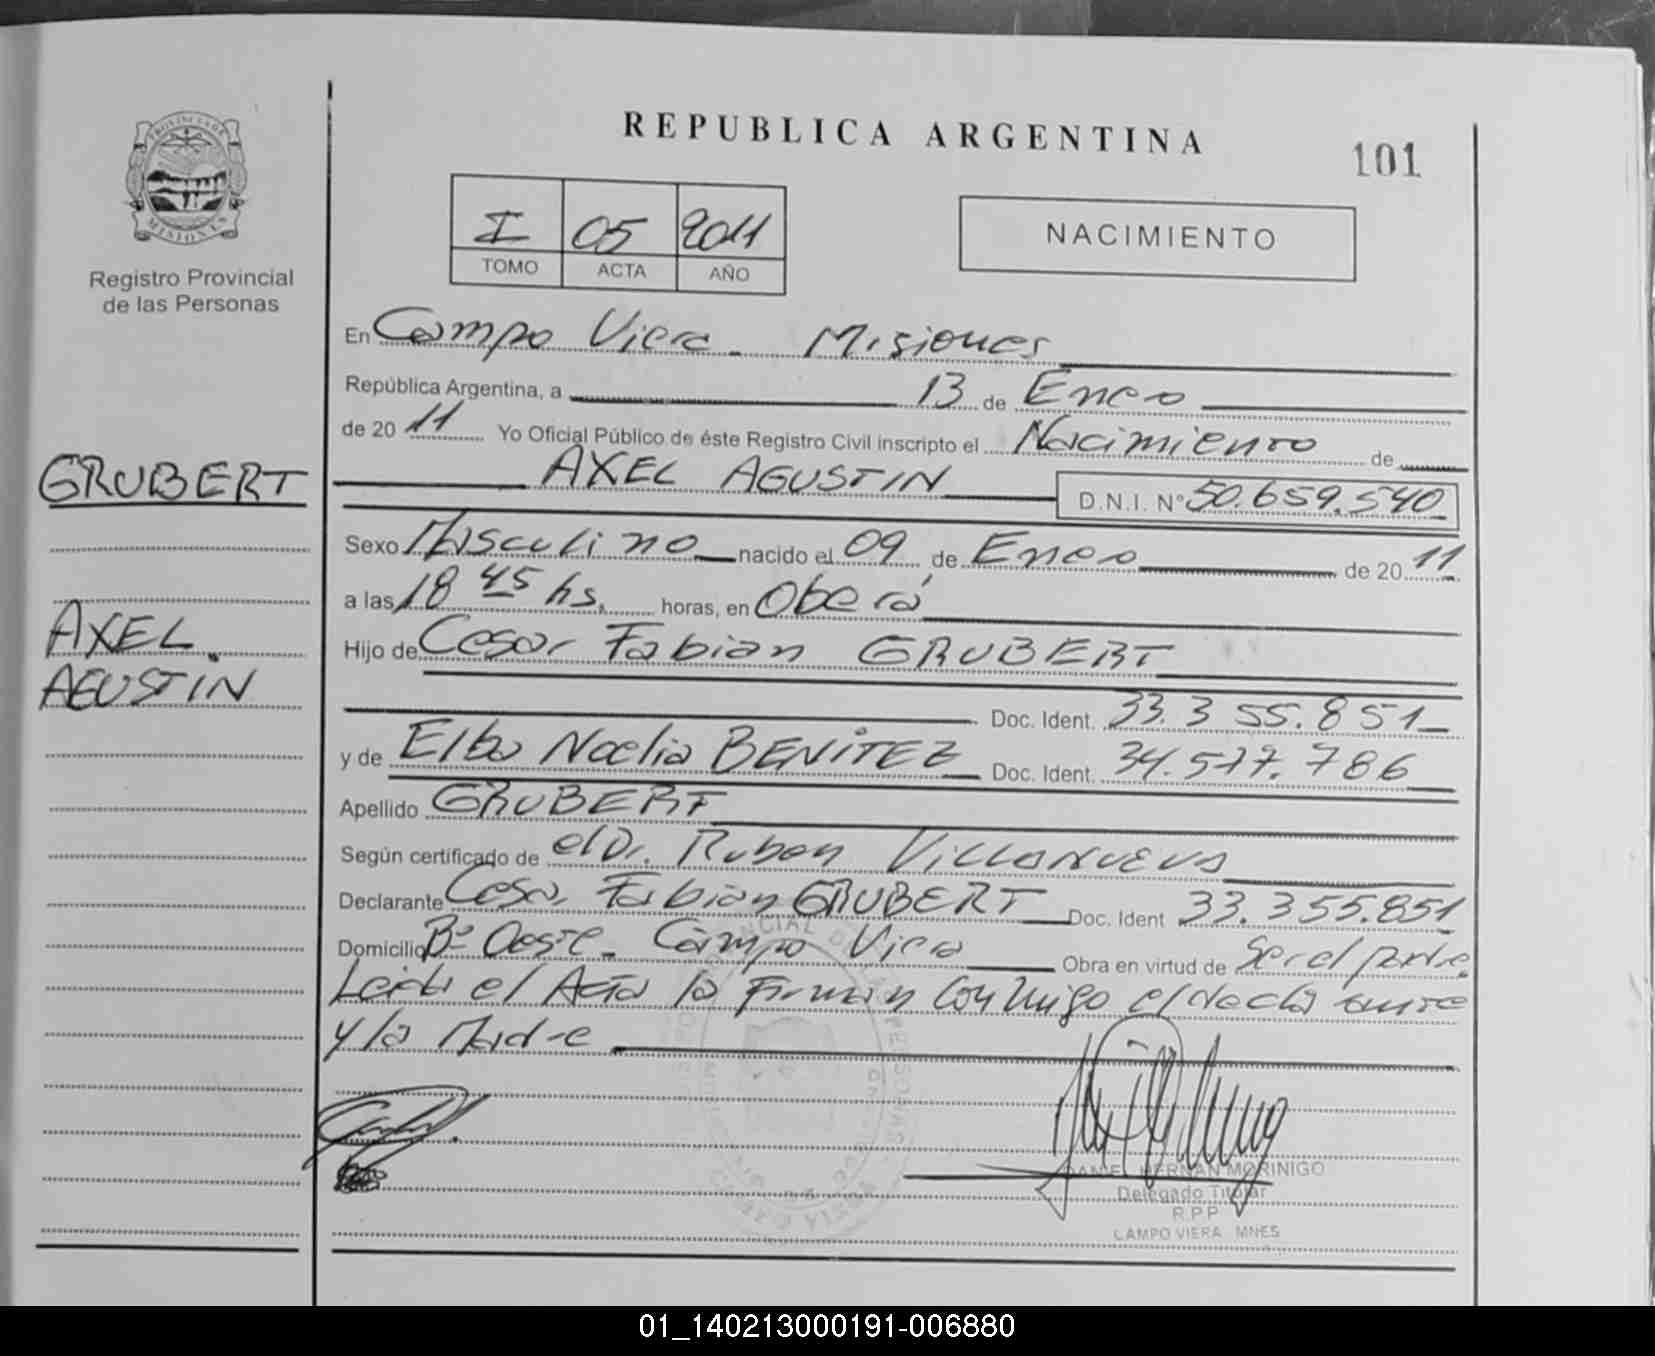 REPUBLICA ARGENTINA
101
PROVINCIA DE
MISIONES
Registro Provincial
de las Personas
I 05 2011
TOMO ACTA AÑO
NACIMIENTO
En Campo Viera - Misiones
República Argentina, a 13 de Enero
de 20 11 Yo Oficial Público de éste Registro Civil inscripto el Nacimiento de
GRUBERT
AXEL AGUSTIN D.N.I. N° 50.659.540
Sexo Masculino nacido el 09 de Enero de 20 11
a las 18 45 hs. horas, en Oberá
AXEL
AGUSTIN
Hijo de Cesar Fabian GRUBERT
Doc. Ident. 33.355.851
y de Elba Noelia BENITEZ Doc. Ident. 34.577.786
Apellido GRUBERT
Según certificado de el Dr. Ruben VILLANUEVA
Declarante Cesar Fabian GRUBERT Doc. Ident 33.355.851
Domicilio Bº Oeste - Campo Viera Obra en virtud de Ser el padre
Leida el Acta la Firman conmigo el declarante
y la Madre
DANIEL HERNAN MORINIGO
Delegado Titular
R.P.P
CAMPO VIERA MNES
01_140213000191-006880